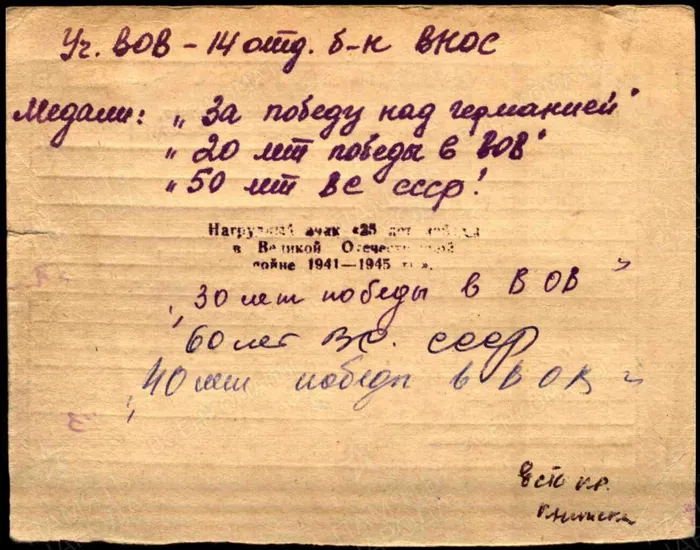 Уч. ВОВ - 14 отд. б-н ВНОС
Медали: „За победу над германией"
„20 лет победы в ВОВ"
„50 лет ВС СССР"
Нагрудный значок «25 лет победы
в Великой Отечественной
войне 1941—1945 гг».
„30 лет победы в ВОВ"
60 лет ВС. СССР
„40 лет победы в ВОВ"